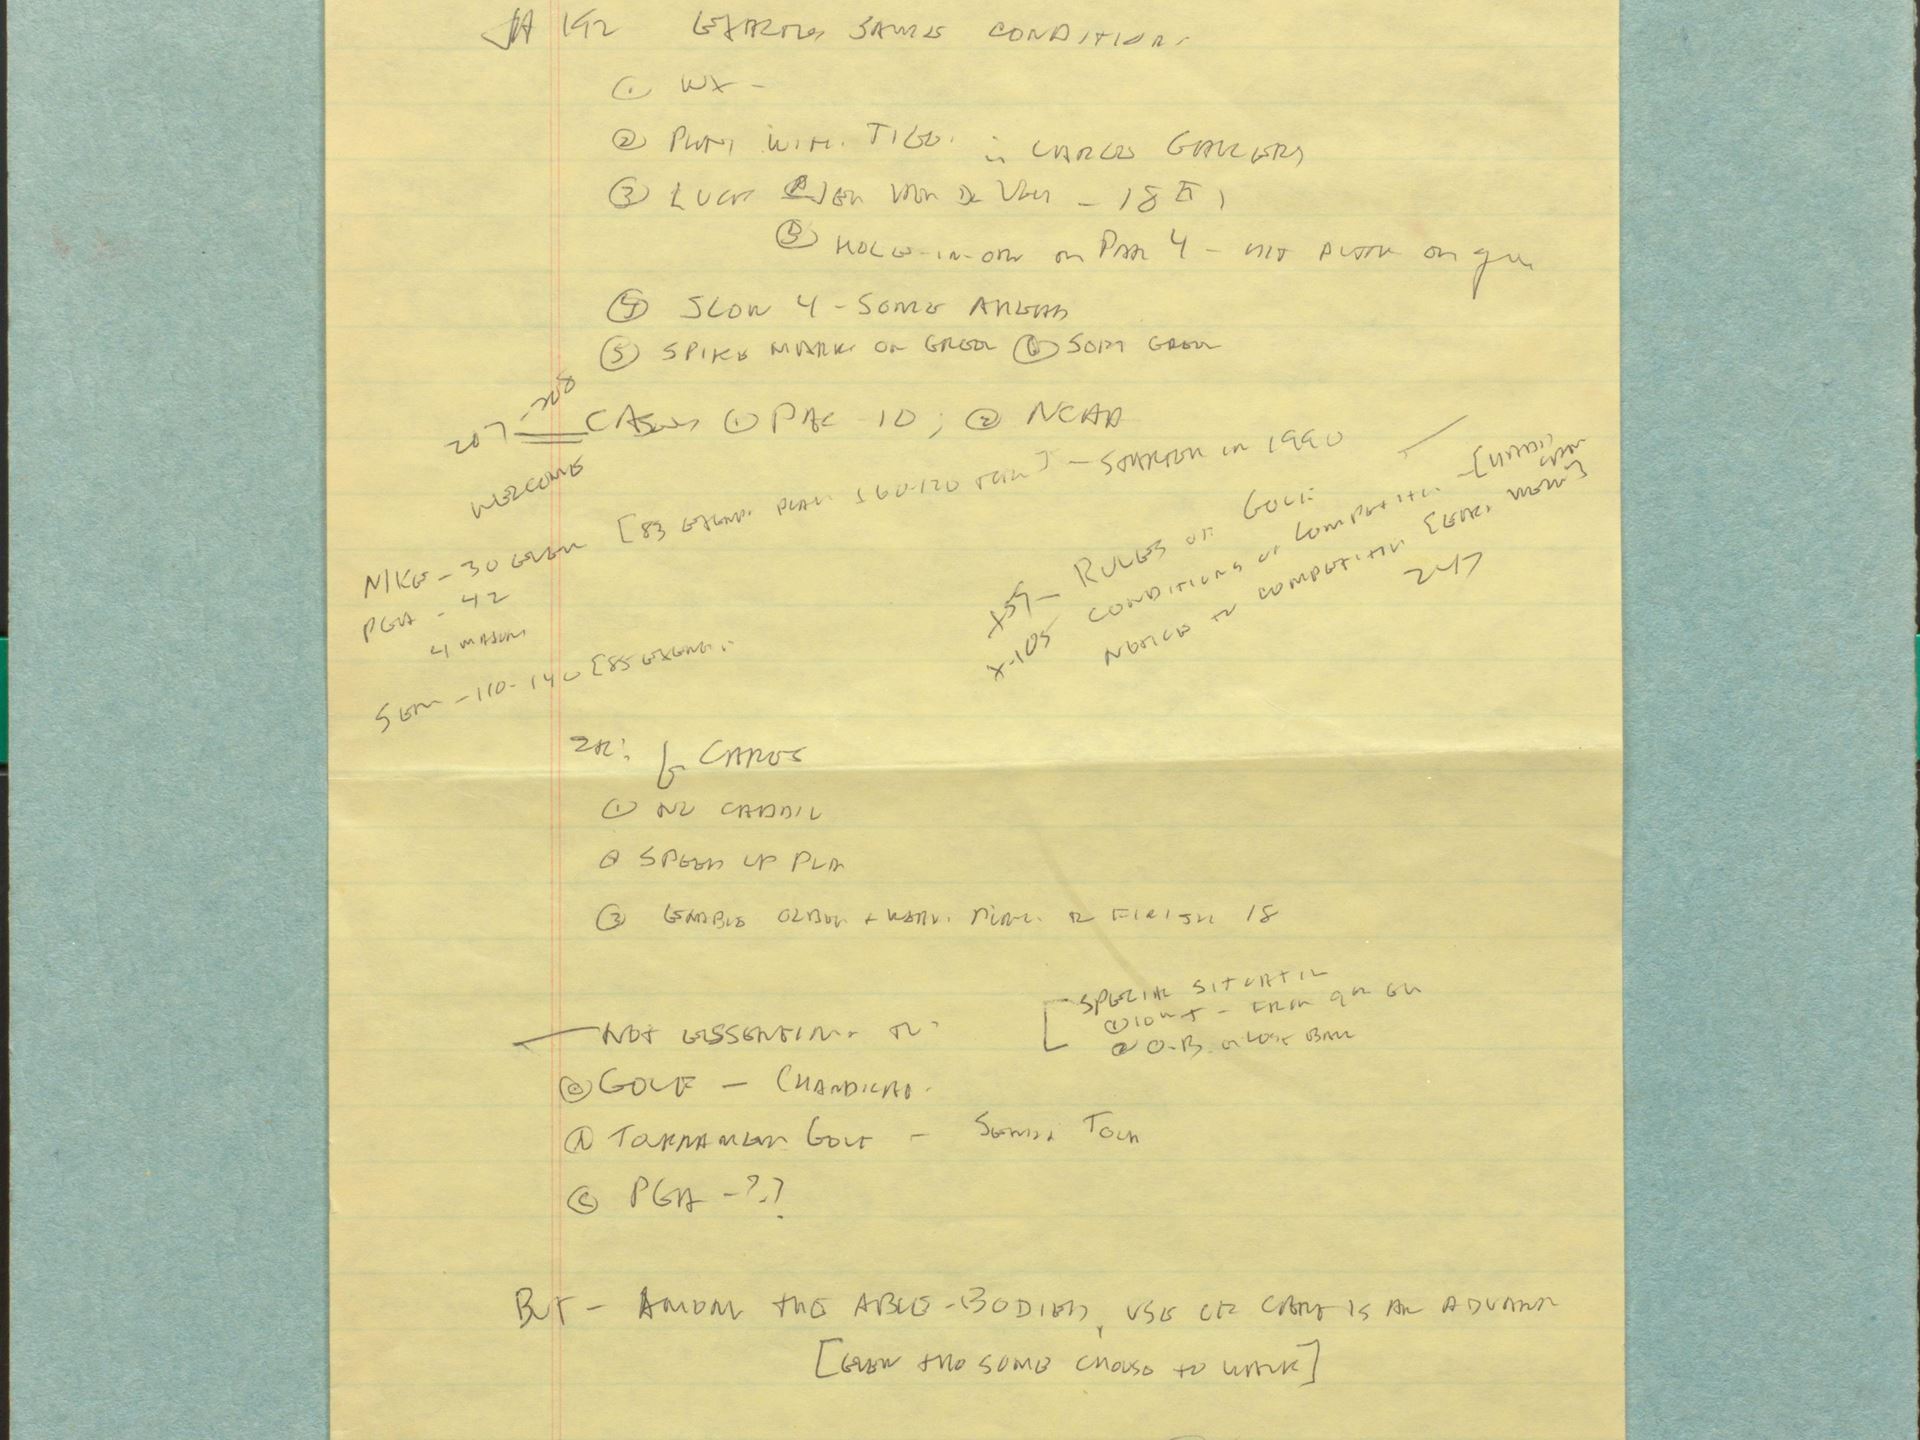 JA 192 EXACTLY SAME CONDITIONS
① WX -
② PLAY WITH TIGER in LARGE GALLERY
③ LUCK Ⓐ JEAN VAN DE VELD - 18th
Ⓑ HOLE-IN-ONE on PAR 4 - HIT on green
④ SLOW 4-SOME AHEAD
⑤ SPIKE MARKS ON GREEN ⑥ SOFT GREEN
207-208
CASES ① PAC-10; ② NCAA
WELCOME
[83 EXEMPT 60-120] - STARTED in 1990
NIKE - 30 EVEN
PGA - 42
4 MAJORS
SEN - 110-140 [85 EXEMPT
X59 - RULES OF GOLF
X-105 CONDITIONS OF COMPETITION -
NOTICE TO COMPETITOR
247
CARTS
① NO CADDIE
② SPEED UP PLAY
③ ENABLE OLDER + TO FINISH 18
NOT ESSENTIAL TO
SPECIAL SITUATION
① 10th T - FROM 9th GR
② O.B. or LOST BALL
GOLF -
TOURNAMENT GOLF - SENIOR TOUR
Ⓒ PGA - ??
BUT - AMONG THE ABLE-BODIED, USE OF CART IS AN ADVANT
[EVEN THO SOME CHOOSE TO WALK]